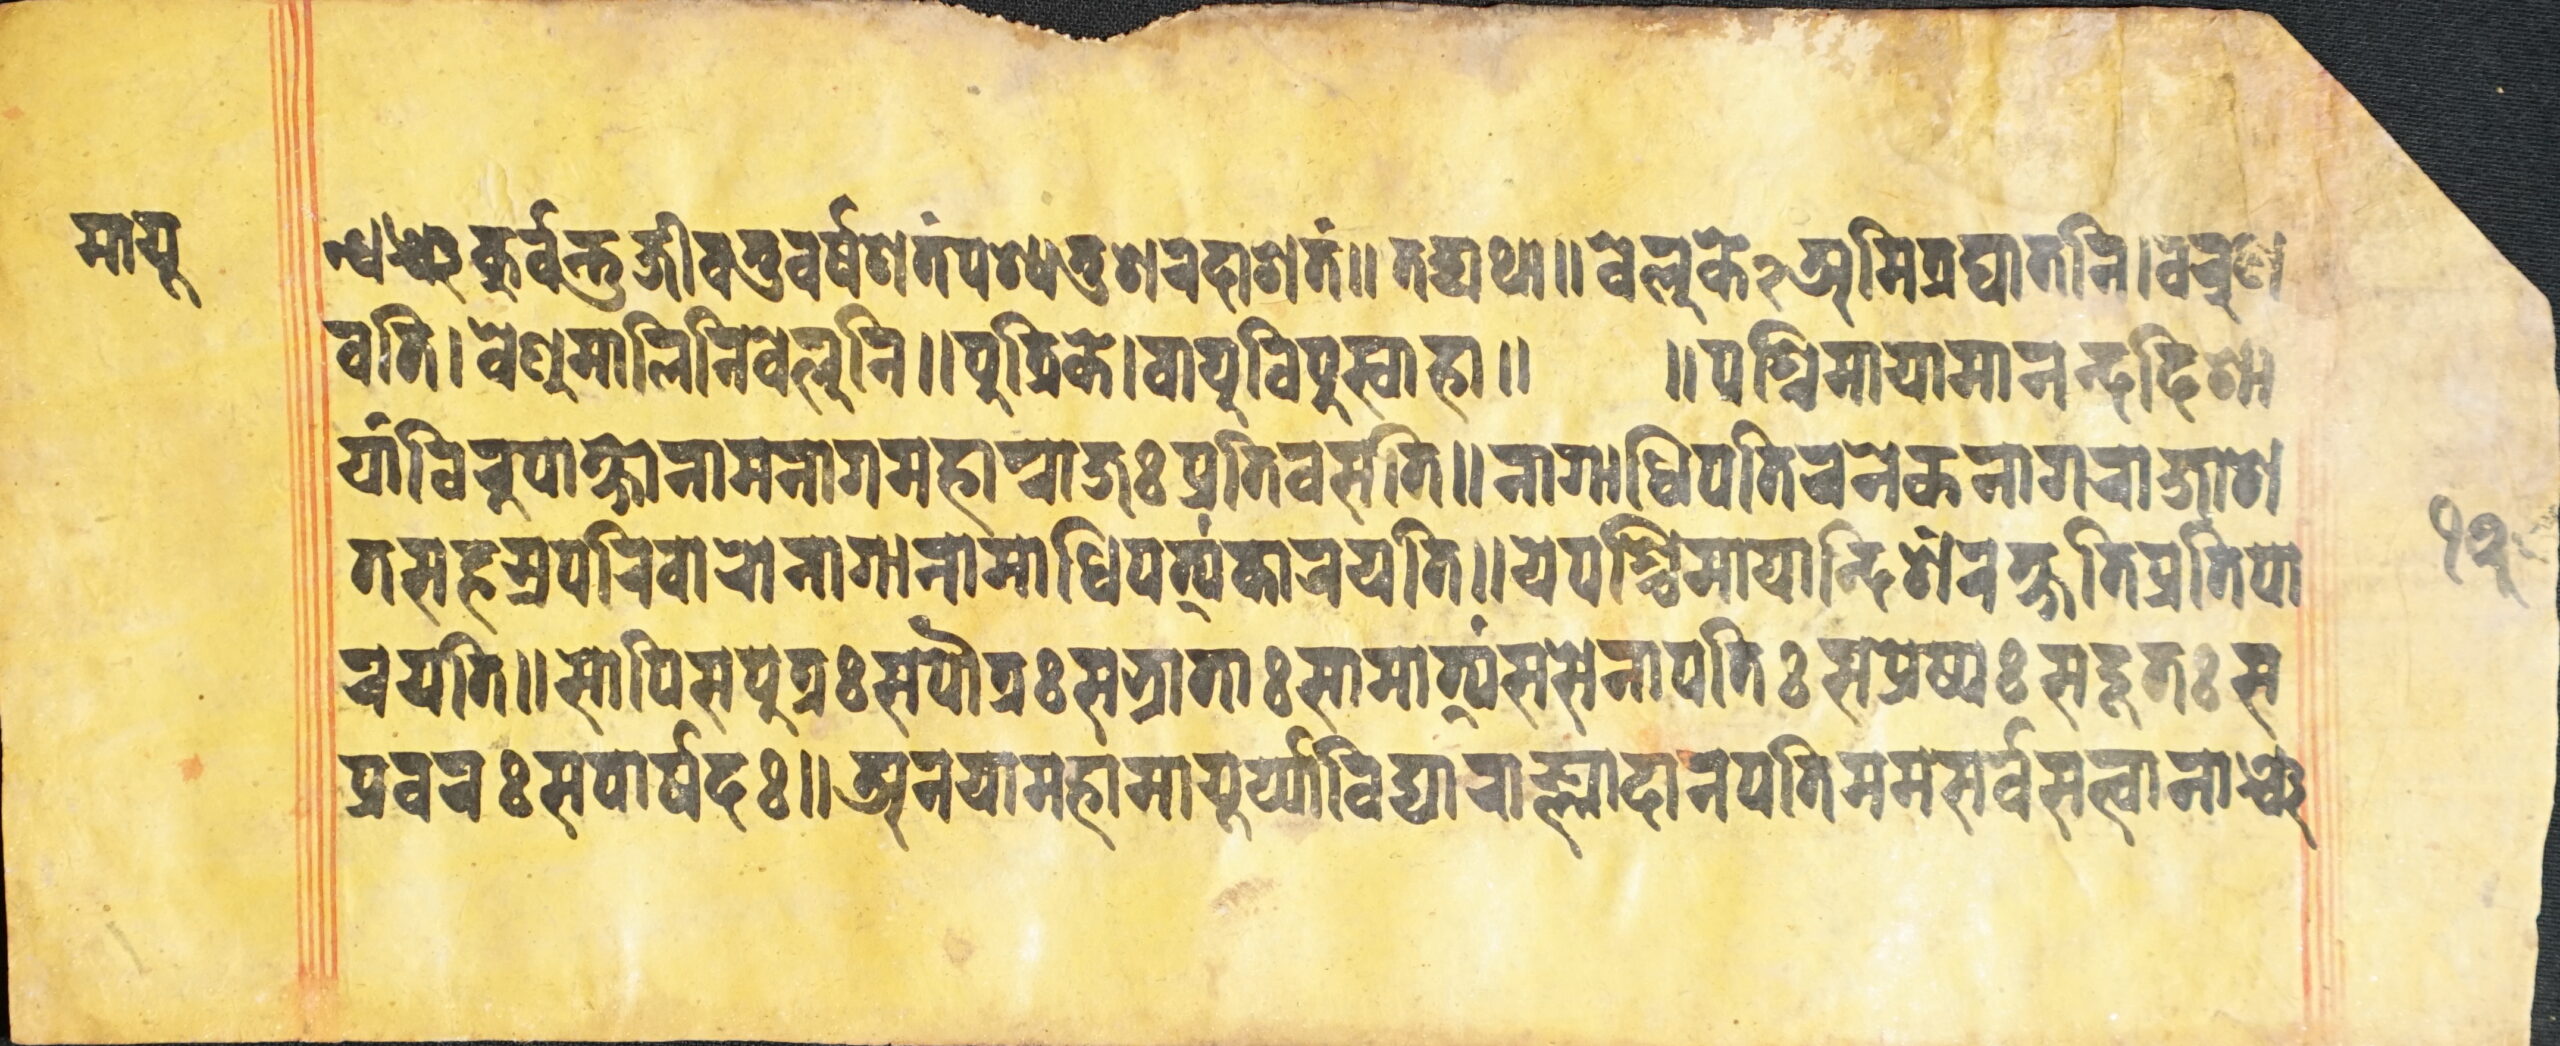 मायू
न्धञ्च कुर्वन्तु जीवतु वर्षशतं पश्यतु शरदाशतं॥ तद्यथा॥ वेलुके२अमित्रघातनि। वरुण
वति। वेणुमालिनिवेलुनि॥ पुत्रिके। वायुविपुस्वाहा॥ ॥ पश्चिमायामानन्ददिशा
यां विरुपाक्षो नाम नागमहाराजः प्रतिवसति॥ नागाधिपतिरनेकनागराजाश
तसहस्रपरिवारो नागानामाधिपत्यं कारयति॥ ये पश्चिमायान्दिशं रक्षति प्रतिपा
रयति॥ सोपि सपुत्रः सपौत्रः सभ्राताः सामात्यं ससेनापतिः सप्रेष्यः सदूतः स
प्रवरः सपार्षदः॥ अनया महामायूर्या विद्याराज्ञा दानपति मम सर्वसत्वानाञ्च
१२